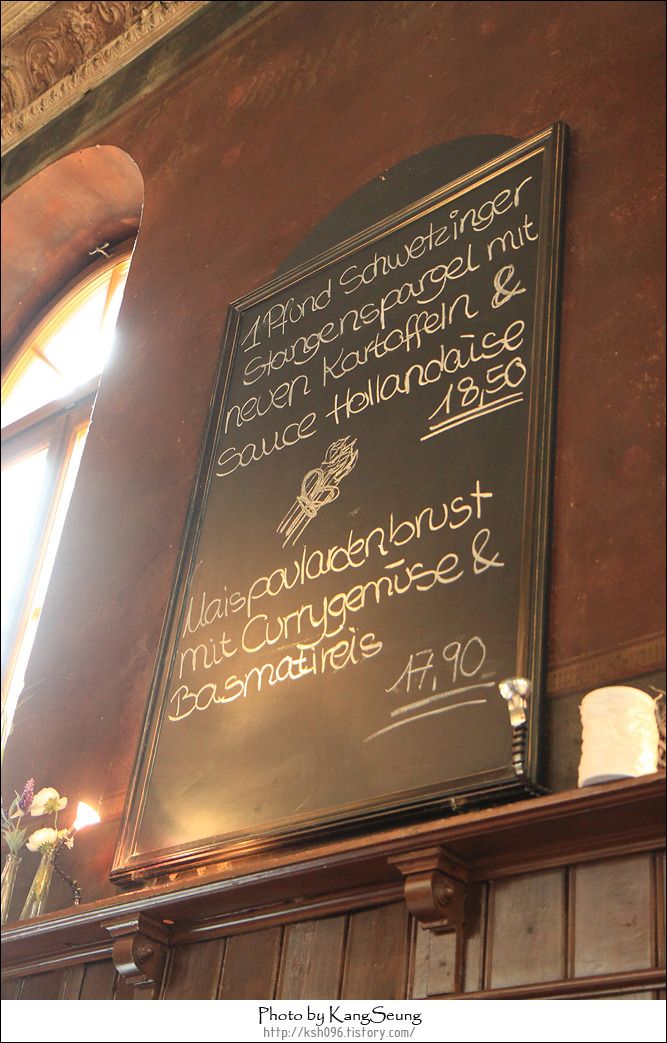 1 Pfund Schwetzinger
Stangenspargel mit
neuen Kartoffeln &
Sauce Hollandaise
18,50
Maispoulardenbrust
mit Currygemüse &
Basmatireis
17,90
Photo by KangSeung
http://ksh096.tistory.com/